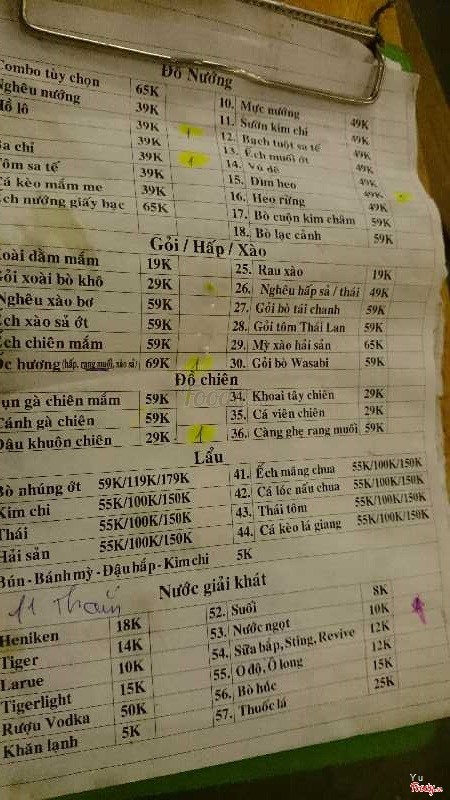 Đồ Nướng
Combo tùy chọn 65K
Nghêu nướng 39K
Hồ lô 39K
39K 1
Ba chỉ 39K 1
Tôm sa tế 39K
Cá kèo mắm me 39K
Ếch nướng giấy bạc 65K
10. Mực nướng 49K
11. Sườn kim chi 49K
12. Bạch tuột sa tế 49K
13. Ếch muối ớt 49K
14. Vú dê 49K
15. Dim heo 49K
16. Heo rừng 49K
17. Bò cuộn kim châm 59K
18. Bò lạc cảnh 59K
Gỏi / Hấp / Xào
Xoài dằm mắm 19K
Gỏi xoài bò khô 29K
Nghêu xào bơ 59K
Ếch xào sả ớt 59K
Ếch chiên mắm 59K
Ốc hương (hấp, rang muối, xào sả) 69K 1
25. Rau xào 19K
26. Nghêu hấp sả / thái 49K
27. Gỏi bò tái chanh 59K
28. Gỏi tôm Thái Lan 59K
29. Mỳ xào hải sản 65K
30. Gỏi bò Wasabi 59K
Đồ chiên
Sụn gà chiên mắm 59K
Cánh gà chiên 59K
Đậu khuôn chiên 29K 1
34. Khoai tây chiên 29K
35. Cá viên chiên 29K
36. Càng ghẹ rang muối 59K
Lẩu
Bò nhúng ớt 59K/119K/179K
Kim chi 55K/100K/150K
Thái 55K/100K/150K
Hải sản 55K/100K/150K
41. Ếch măng chua 55K/100K/150K
42. Cá lóc nấu chua 55K/100K/150K
43. Thái tôm 55K/100K/150K
44. Cá kèo lá giang 55K/100K/150K
Bún - Bánh mỳ - Đậu bắp - Kim chi 5K
Nước giải khát
Heniken 18K
Tiger 14K
Larue 10K
Tigerlight 15K
Rượu Vodka 50K
Khăn lạnh 5K
52. Suối 8K
53. Nước ngọt 10K
54. Sữa bắp, Sting, Revive 12K
55. O độ, Ô long 12K
56. Bò húc 15K
57. Thuốc lá 25K
Yu
Foody.vn